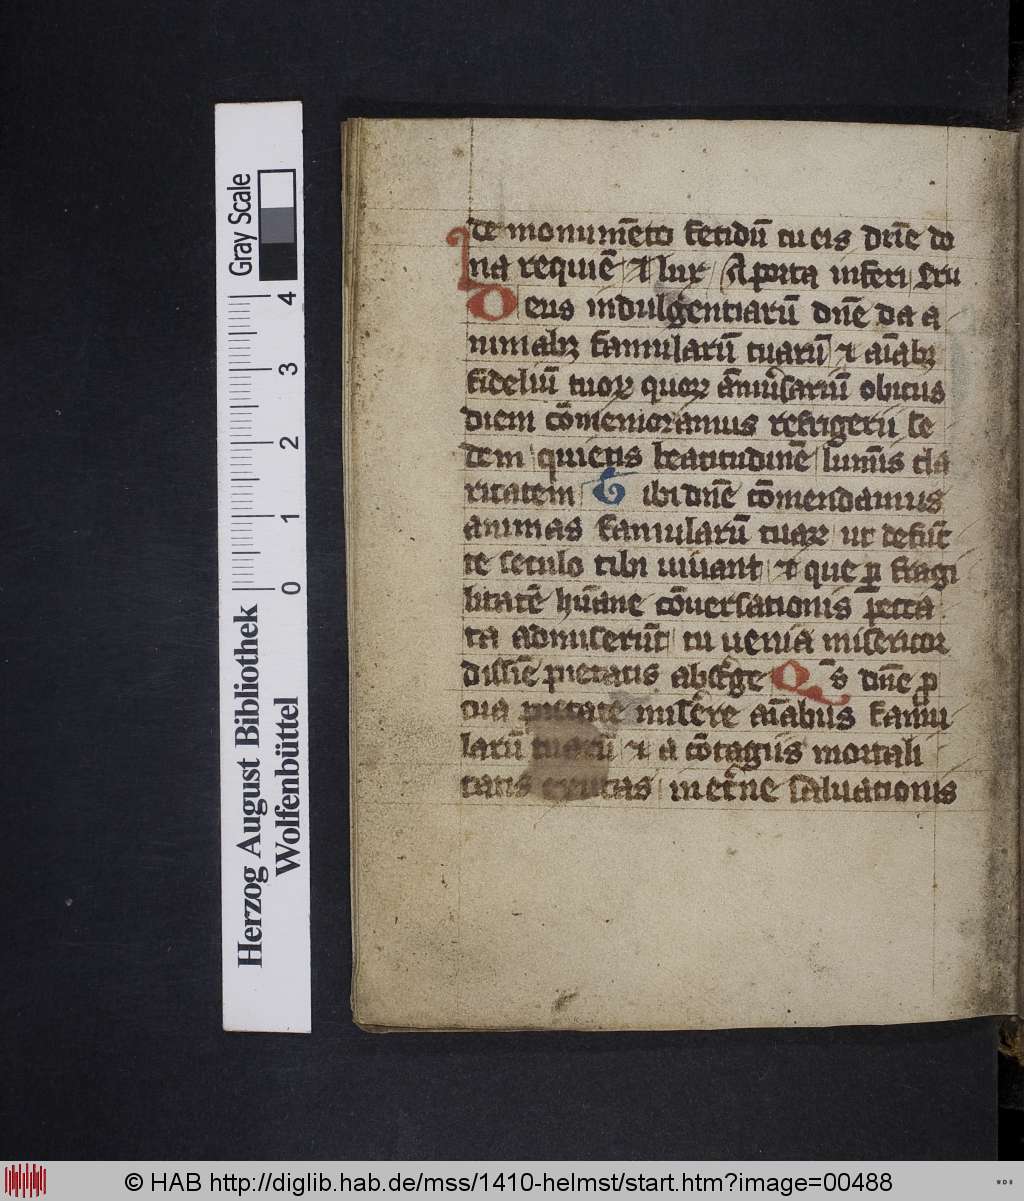 Gray Scale
4
3
2
1
0
Herzog August Bibliothek
Wolfenbüttel
de monumēto fetidū tu eis dn̄e do
na requiē et lux A porta inferi Eru
Deus indulgentiarū dn̄e da a
nimabꝫ famularū tuarū et aīabꝫ
fideliū tuoꝝ quoꝝ ānivᵉsariū obitus
diem cōmemoramus refrigerii se
dem quietis beatitudinē lumīs cla
ritatem Tibi dn̄e cōmendamus
animas famularū tuaꝝ ut defūc
te seculo tibi uiuant et que ꝑ fragi
litatē hūane cōuersationis pecca
ta admiserūt tu uenia misericor
dissīe pietatis abst̄ge Qs̄ dn̄e ꝓ
tua pietate mis̄ere aīabus famu
larū tuarū et a cōtagiis mortali
tatis exutas in et̄ne saluationis
© HAB http://diglib.hab.de/mss/1410-helmst/start.htm?image=00488